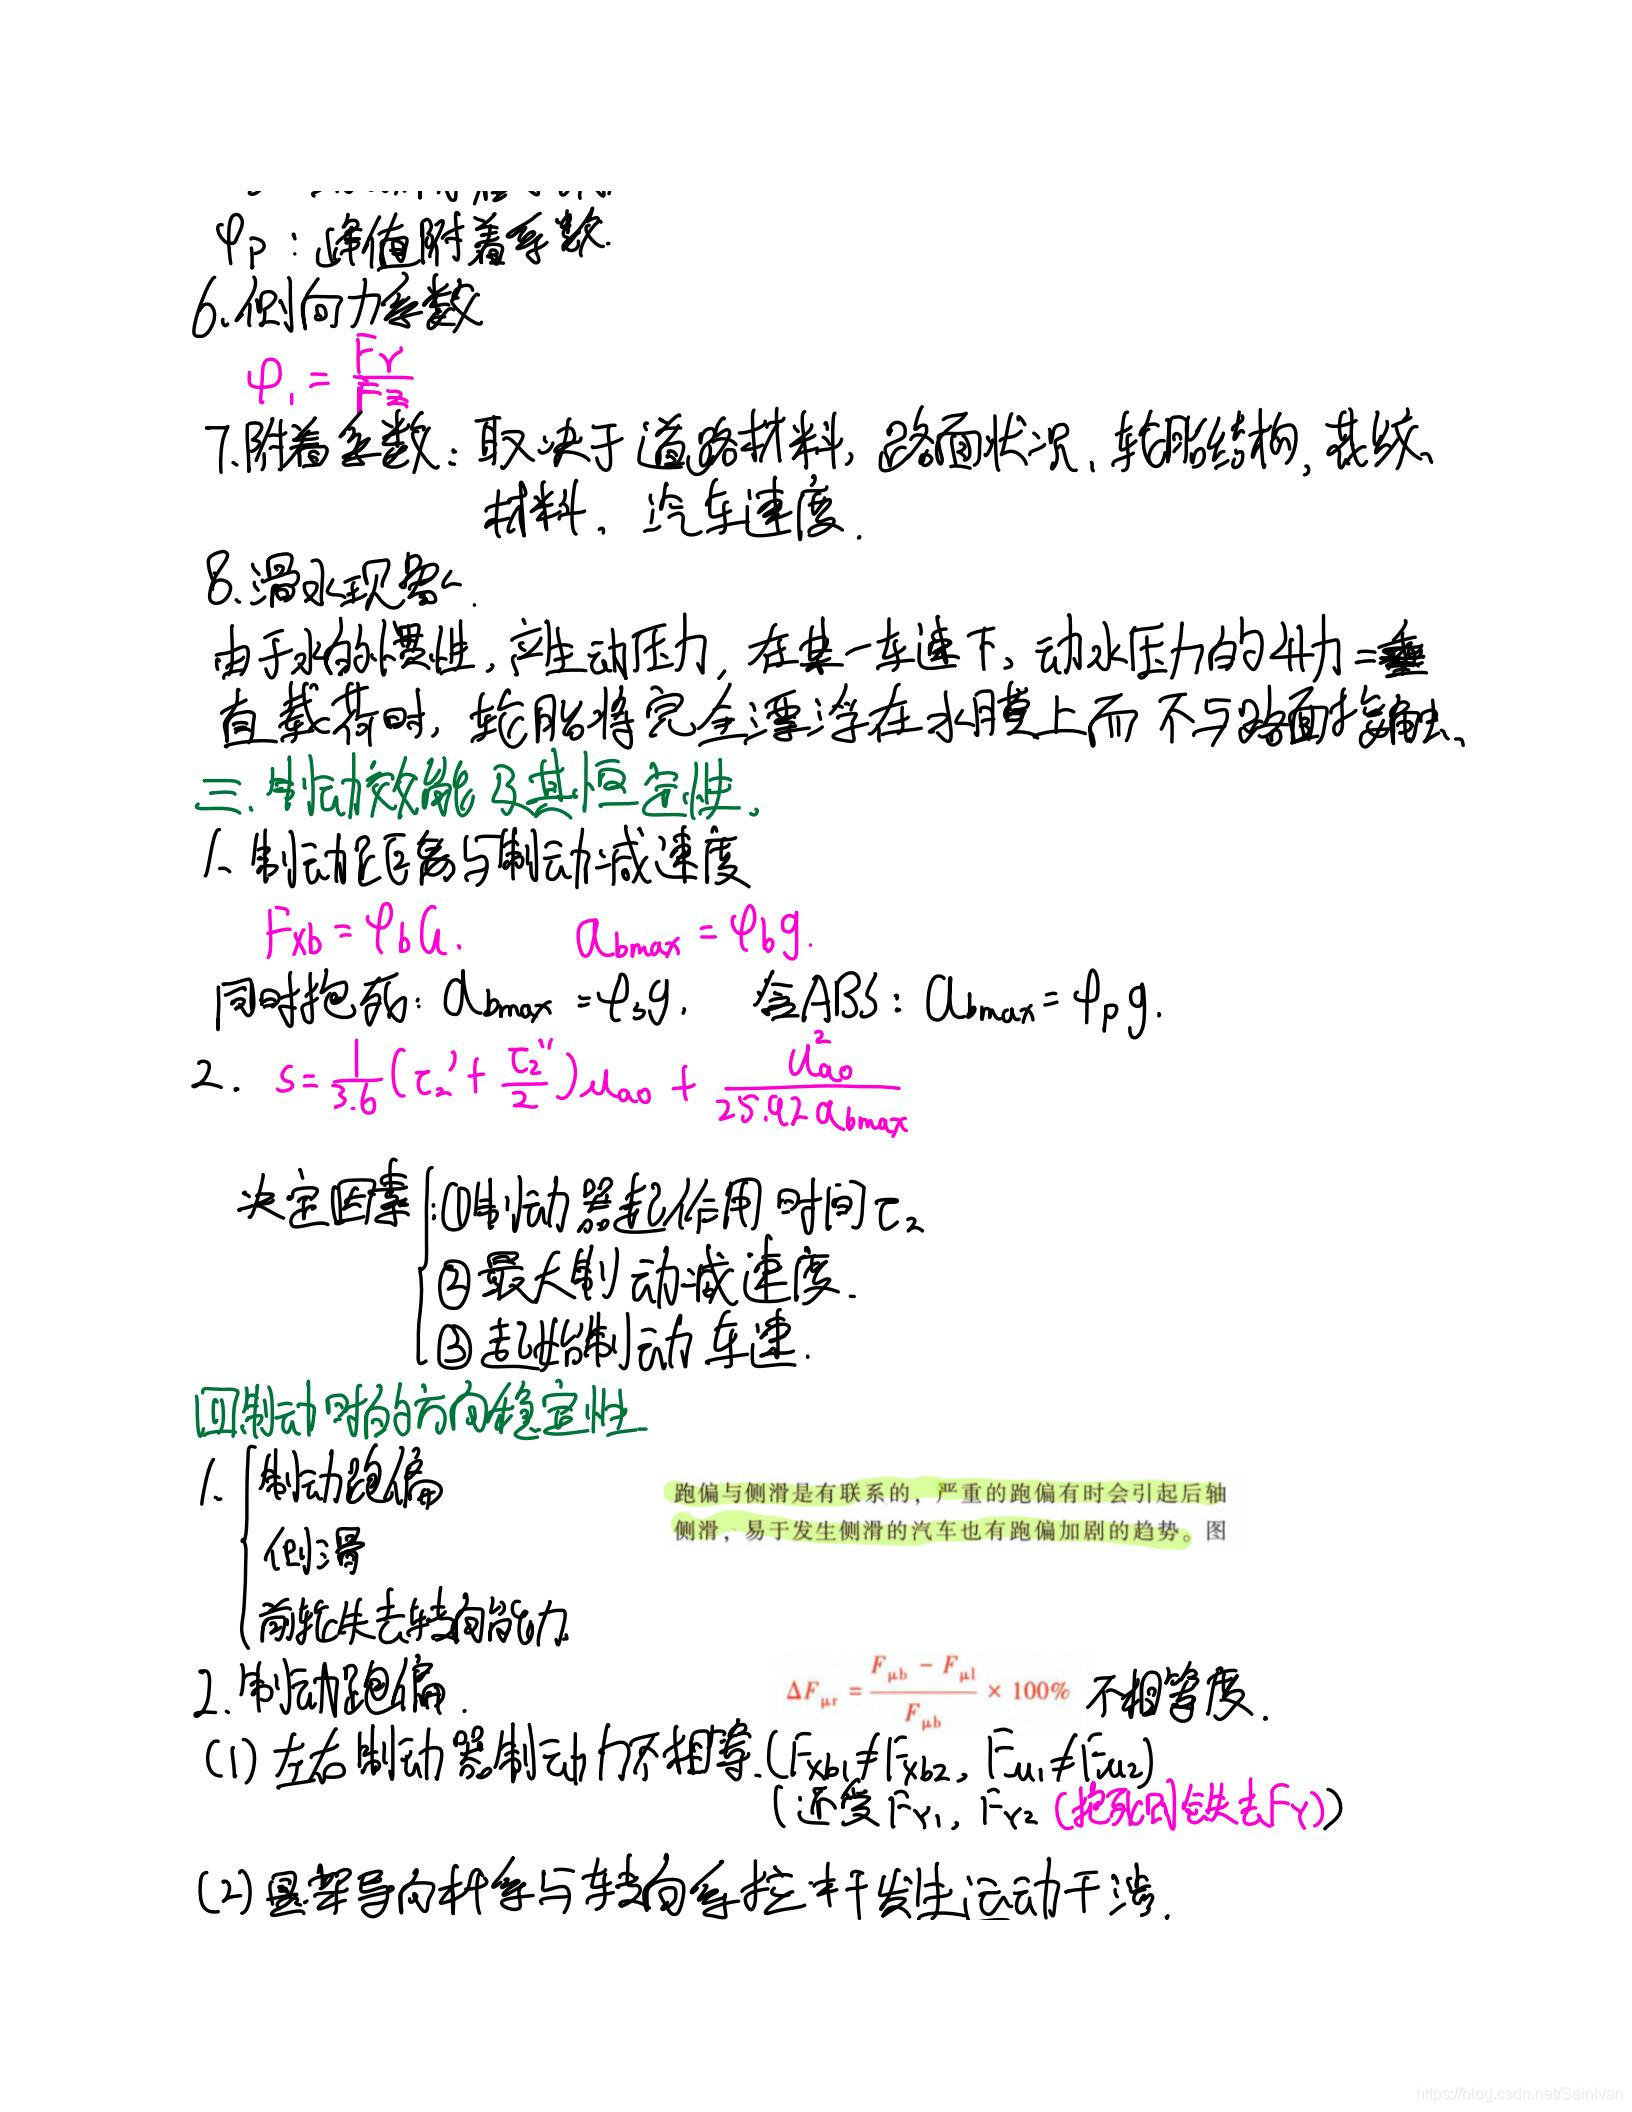 φp：峰值附着系数.
6.侧向力系数
φ₁ = FY/FZ
7.附着系数：取决于道路材料、路面状况、轮胎结构、花纹、
材料、汽车速度.
8.滑水现象.
由于水的惯性，产生动压力，在某一车速下，动水压力的升力=垂
直载荷时，轮胎将完全漂浮在水膜上而不与路面接触、
三.制动效能及其恒定性。
1、制动距离与制动减速度
Fxb = φbG. abmax = φbg.
同时抱死：abmax = φsg. 含ABS：abmax = φpg.
2. s = 1/3.6 (τ₂' + τ₂''/2) ua0 + u²a0/25.92abmax
决定因素：①制动器起作用时间τ₂
②最大制动减速度.
③起始制动车速.
四制动时的方向稳定性
1. 制动跑偏
跑偏与侧滑是有联系的，严重的跑偏有时会引起后轴
侧滑，易于发生侧滑的汽车也有跑偏加剧的趋势。图
侧滑
前轮失去转向能力.
2.制动跑偏.
ΔFμr = (Fμb − Fμl)/Fμb × 100% 不相等度.
(1)左右制动器制动力不相等.(Fxb1≠Fxb2, Fμ1≠Fμ2)
(还受FY1, FY2(抱死时会失去FY))
(2)悬架导向杆系与转向系拉杆发生运动干涉.
https://blog.csdn.net/SeinIvan